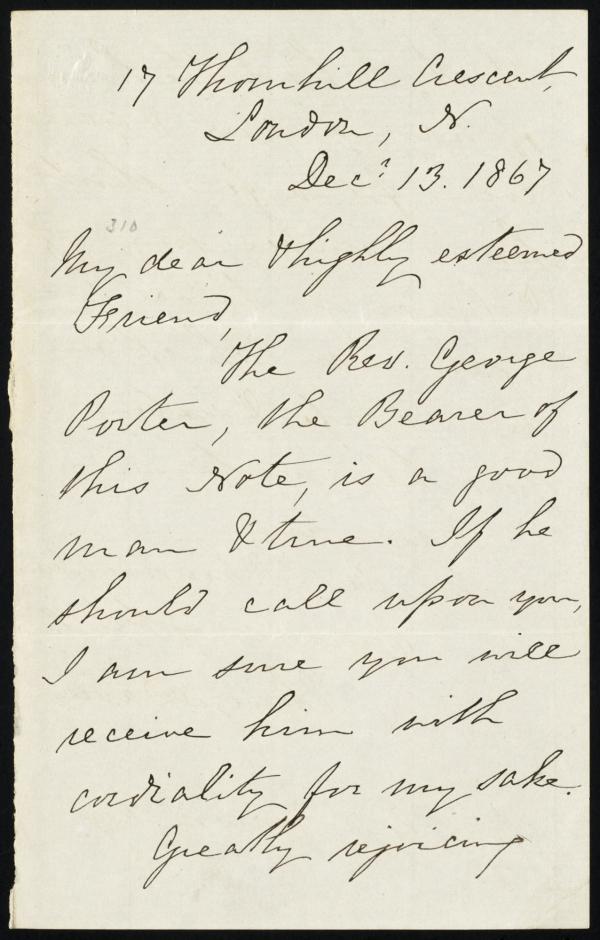 17 Thornhill Crescent,
London, N.
Decr 13. 1867
310
My dear & highly esteemed
Friend,
The Rev. George
Porter, the Bearer of
this Note, is a good
man & true. If he
should call upon you,
I am sure you will
receive him with
cordiality for my sake.
Greatly rejoicing